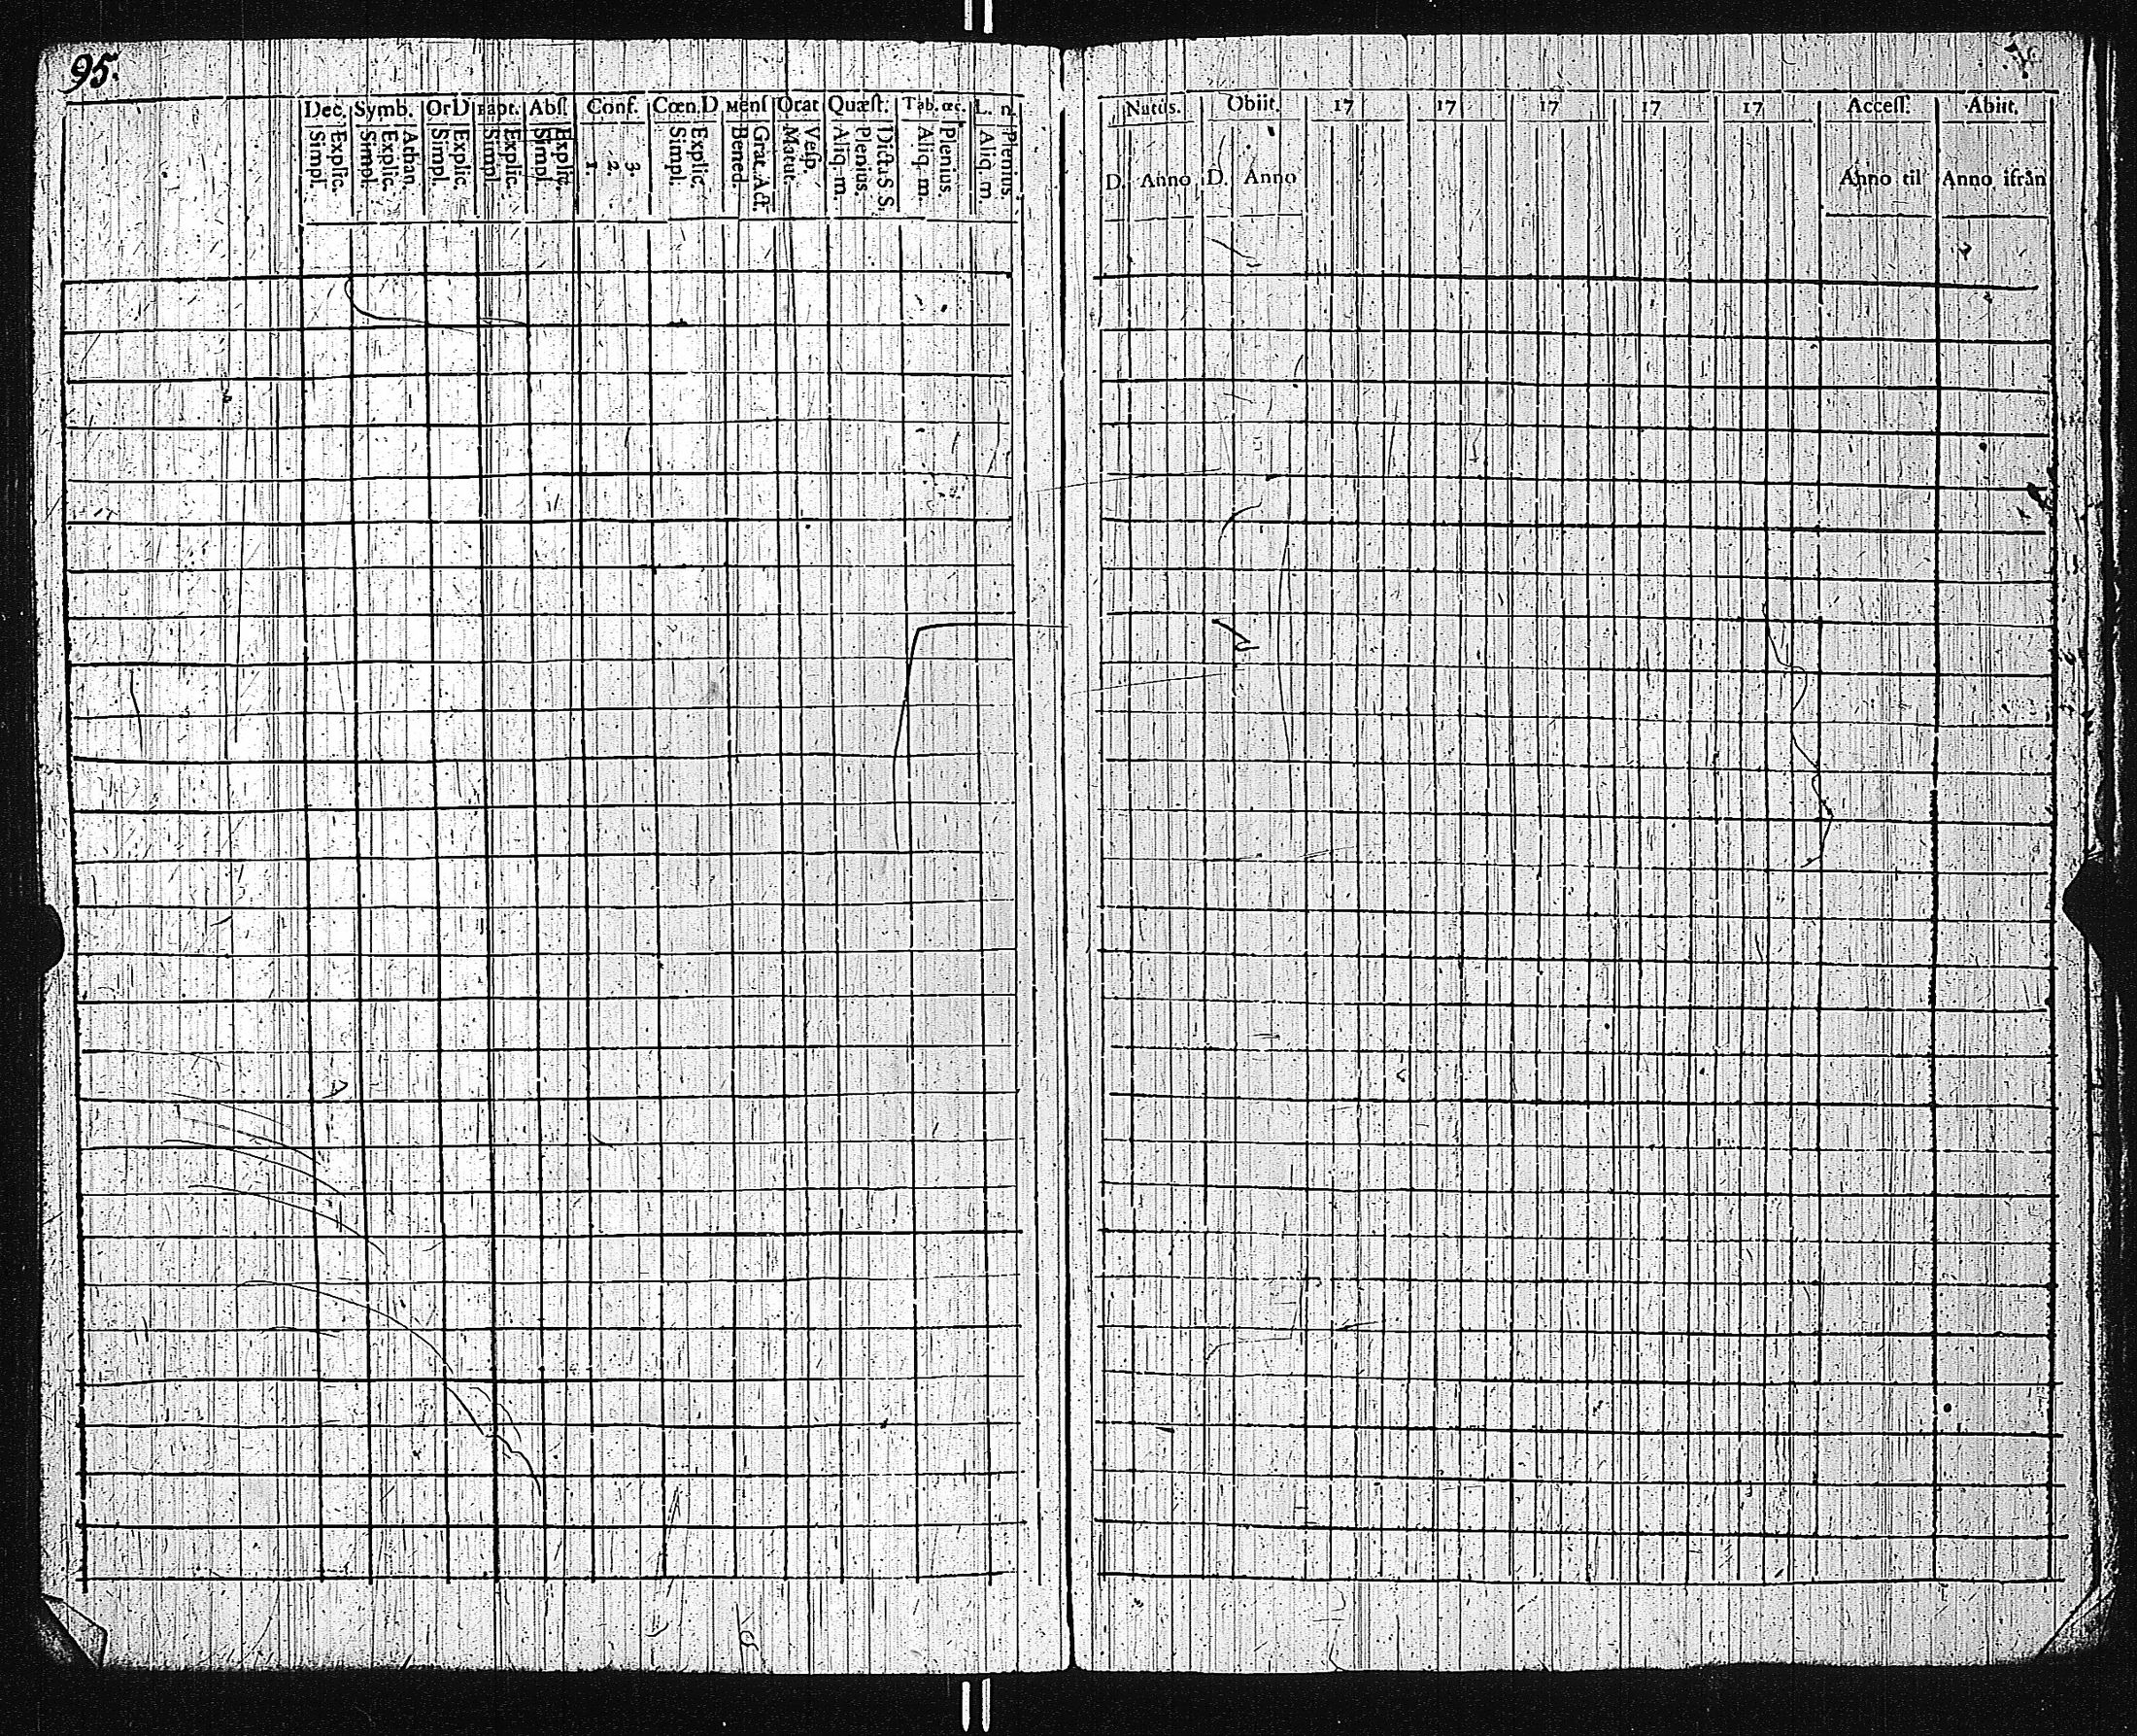 95.
Dec. Symb. OrD Bapt. Abſ. Conf. Cœn.D Menſ Orat Quæſt. Tab. œc. L. n.
Simpl. Explic. Simpl. Explic. Athan. Simpl. Explic. Simpl. Explic. Simpl. Explic. 1. 2. 3. Simpl. Explic. Bened. Grat. Act. Matut. Veſp. Aliq. m. Plenius. Dicta S S. Aliq. m. Plenius. Aliq. m. Plenius.
Natus. Obiit. 17 17 17 17 17 Acceſſ. Abiit.
D. Anno D. Anno Anno til Anno ifrån